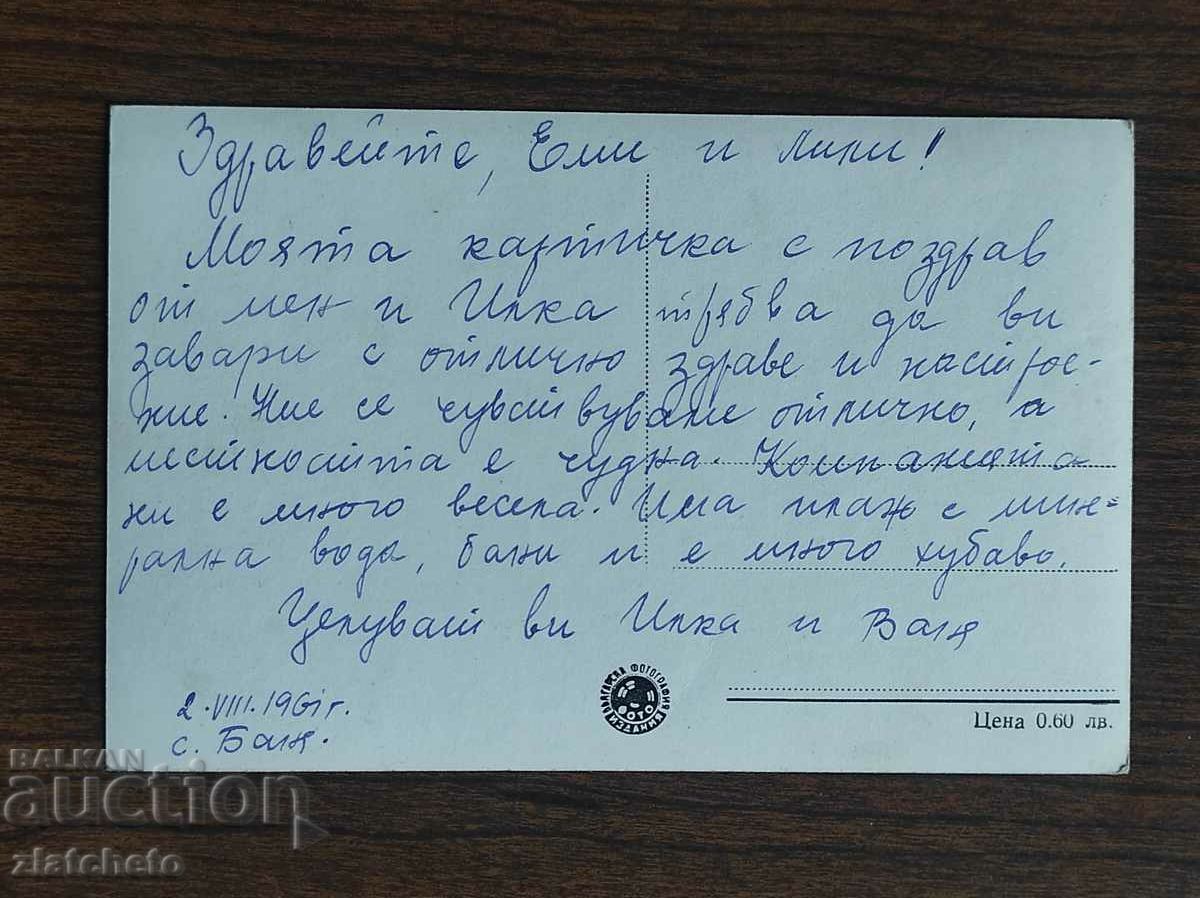 Здравейте, Еми и Лили!
Моята картичка с поздрав
от мен и Илка трябва да ви
завари с отлично здраве и настрое-
ние. Ние се чувствуваме отлично, а
местността е чудна. Компанията
ни е много весела. Има плаж с мин-
рална вода, бани и е много хубаво.
Целуват ви Илка и Ваня
2.VIII.1961 г.
с. Баня.
БЪЛГАРСКА ФОТОГРАФИЯ
ФОТО
ИЗДАНИЯ
Цена 0.60 лв.
BALKAN
auction
zlatcheto